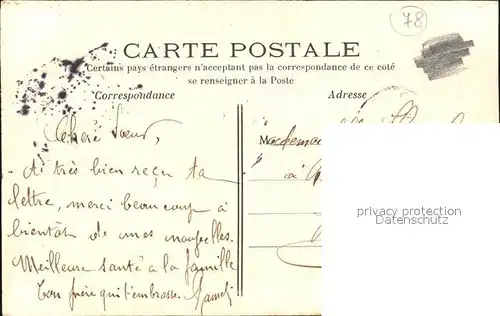 78
CARTE POSTALE
Certains pays étrangers n'acceptant pas la correspondance de ce coté
se renseigner à la Poste
Correspondance
Adresse
Chère Soeur,
Ai très bien reçu ta
lettre, merci beaucoup à
bientôt de mes nouvelles.
Meilleure santé à la famille
Ton frère qui t'embrasse.
M
à
privacy protection
Datenschutz